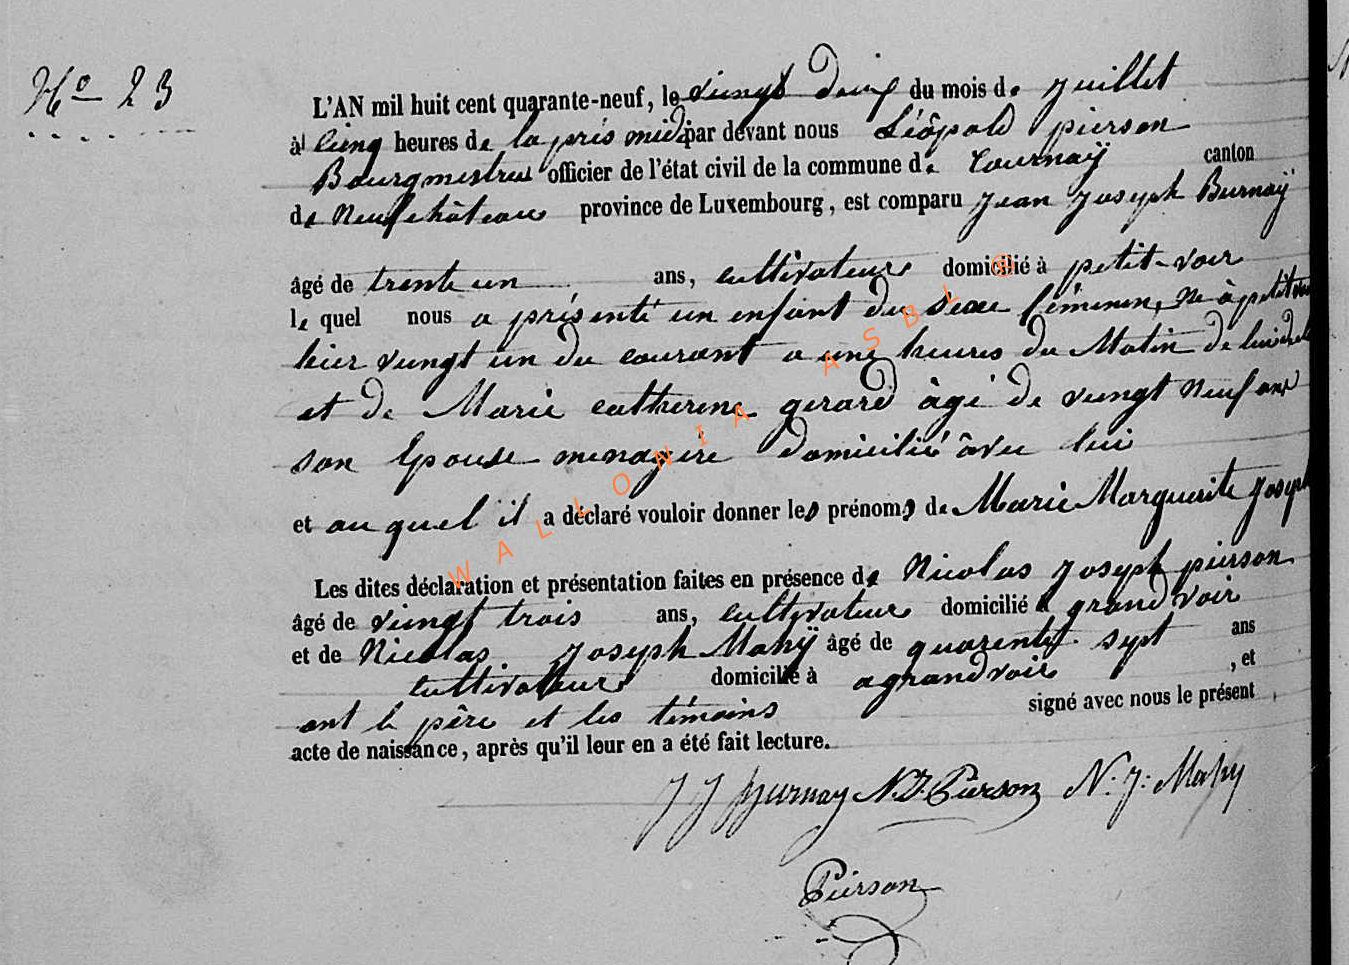 No 23
L'AN mil huit cent quarante-neuf, le vingt deux du mois de juillet
à cinq heures de la prés midi par devant nous Léôpold pierson
Bourgmestre officier de l'état civil de la commune de tournaÿ canton
de Neufchâteau province de Luxembourg, est comparu jean joseph Burnaÿ
âgé de trente un ans, cultivateur domicilié à petit-voir
le quel nous a présenté un enfant du sexe féminin, né à petit voir
hier vingt un du courant a une heures du Matin de lui
et de Marie catherine gerard âgé de vingt neuf ans
son Epouse menagère domicilié âvec lui
et au quel il a déclaré vouloir donner les prénoms de Marie Marguerite joseph
Les dites déclaration et présentation faites en présence de Nicolas joseph pierson
âgé de vingt trois ans, cultivateur domicilié à grand voir
et de Nicolas joseph Mahÿ âgé de quarente sept ans
cultivateur domicilié à agrandvoir , et
ont le père et les témoins signé avec nous le présent
acte de naissance, après qu'il leur en a été fait lecture.
J J Burnay N.J. Pierson N. J. Mahy
Pierson
WALLONIA ASBL ©